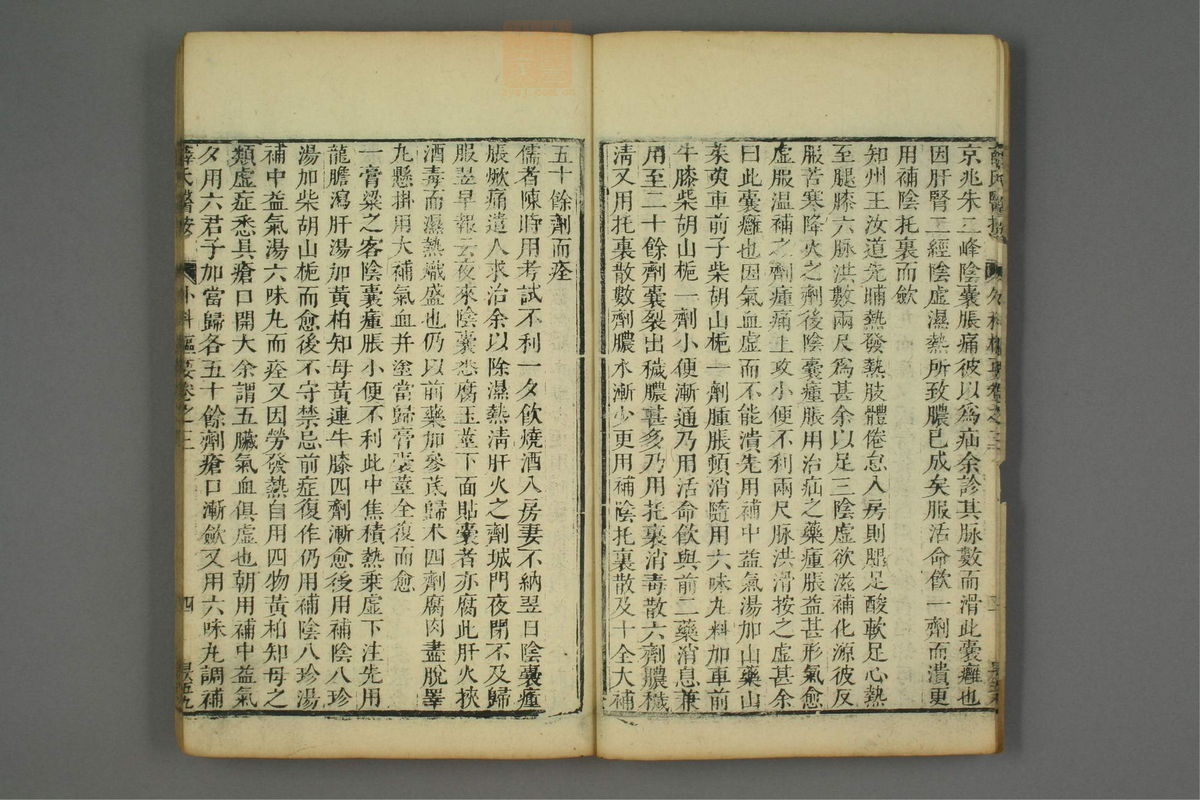 京兆朱二峰陰囊脹痛彼以為疝余診其脉數而滑此囊癰也
因肝腎二經陰虛濕熱所致膿已成矣服活命飲一劑而潰更
用補陰托裏而歛
知州王汝道先晡熱發熱肢體倦怠入房則腿足酸軟足心熱
至腿膝六脉洪數兩尺為甚余以足三陰虛欲滋補化源彼反
服苦寒降火之劑後陰囊腫脹用治疝之藥腫脹益甚形氣愈
虛服温補之劑腫痛上攻小便不利兩尺脉洪滑按之虛甚余
曰此囊癰也因氣血虛而不能潰先用補中益氣湯加山藥山
茱萸車前子柴胡山梔一劑腫脹頓消隨用六味丸料加車前
牛膝柴胡山梔一劑小便漸通乃用活命飲與前二藥消息兼
用至二十餘劑囊裂出穢膿甚多乃用托裏消毒散六劑膿穢
清又用托裏散數劑膿水漸少更用補陰托裏散及十全大補
五十餘劑而痊
儒者陳時用考試不利一夕飲燒酒入房妻不納翌日陰囊腫
脹焮痛遣人求治余以除濕熱清肝火之劑城門夜閉不及歸
服翌早報云夜來陰囊悉腐玉莖下面貼囊者亦腐此肝火挾
酒毒而濕熱熾盛也仍以前藥加參芪歸术四劑腐肉盡脫睪
丸懸掛用大補氣血并塗當歸膏囊莖全復而愈
一膏粱之客陰囊腫脹小便不利此中焦積熱乗虛下注先用
龍膽瀉肝湯加黃柏知母黃連牛膝四劑漸愈後用補陰八珍
湯加柴胡山梔而愈後不守禁忌前症復作仍用補陰八珍湯
補中益氣湯六味丸而痊又因勞發熱自用四物黃柏知母之
類虛症悉具瘡口開大余謂五臟氣血俱虛也朝用補中益氣
夕用六君子加當歸各五十餘劑瘡口漸歛又用六味丸調補
薛氏醫按
外科樞要卷之三
四